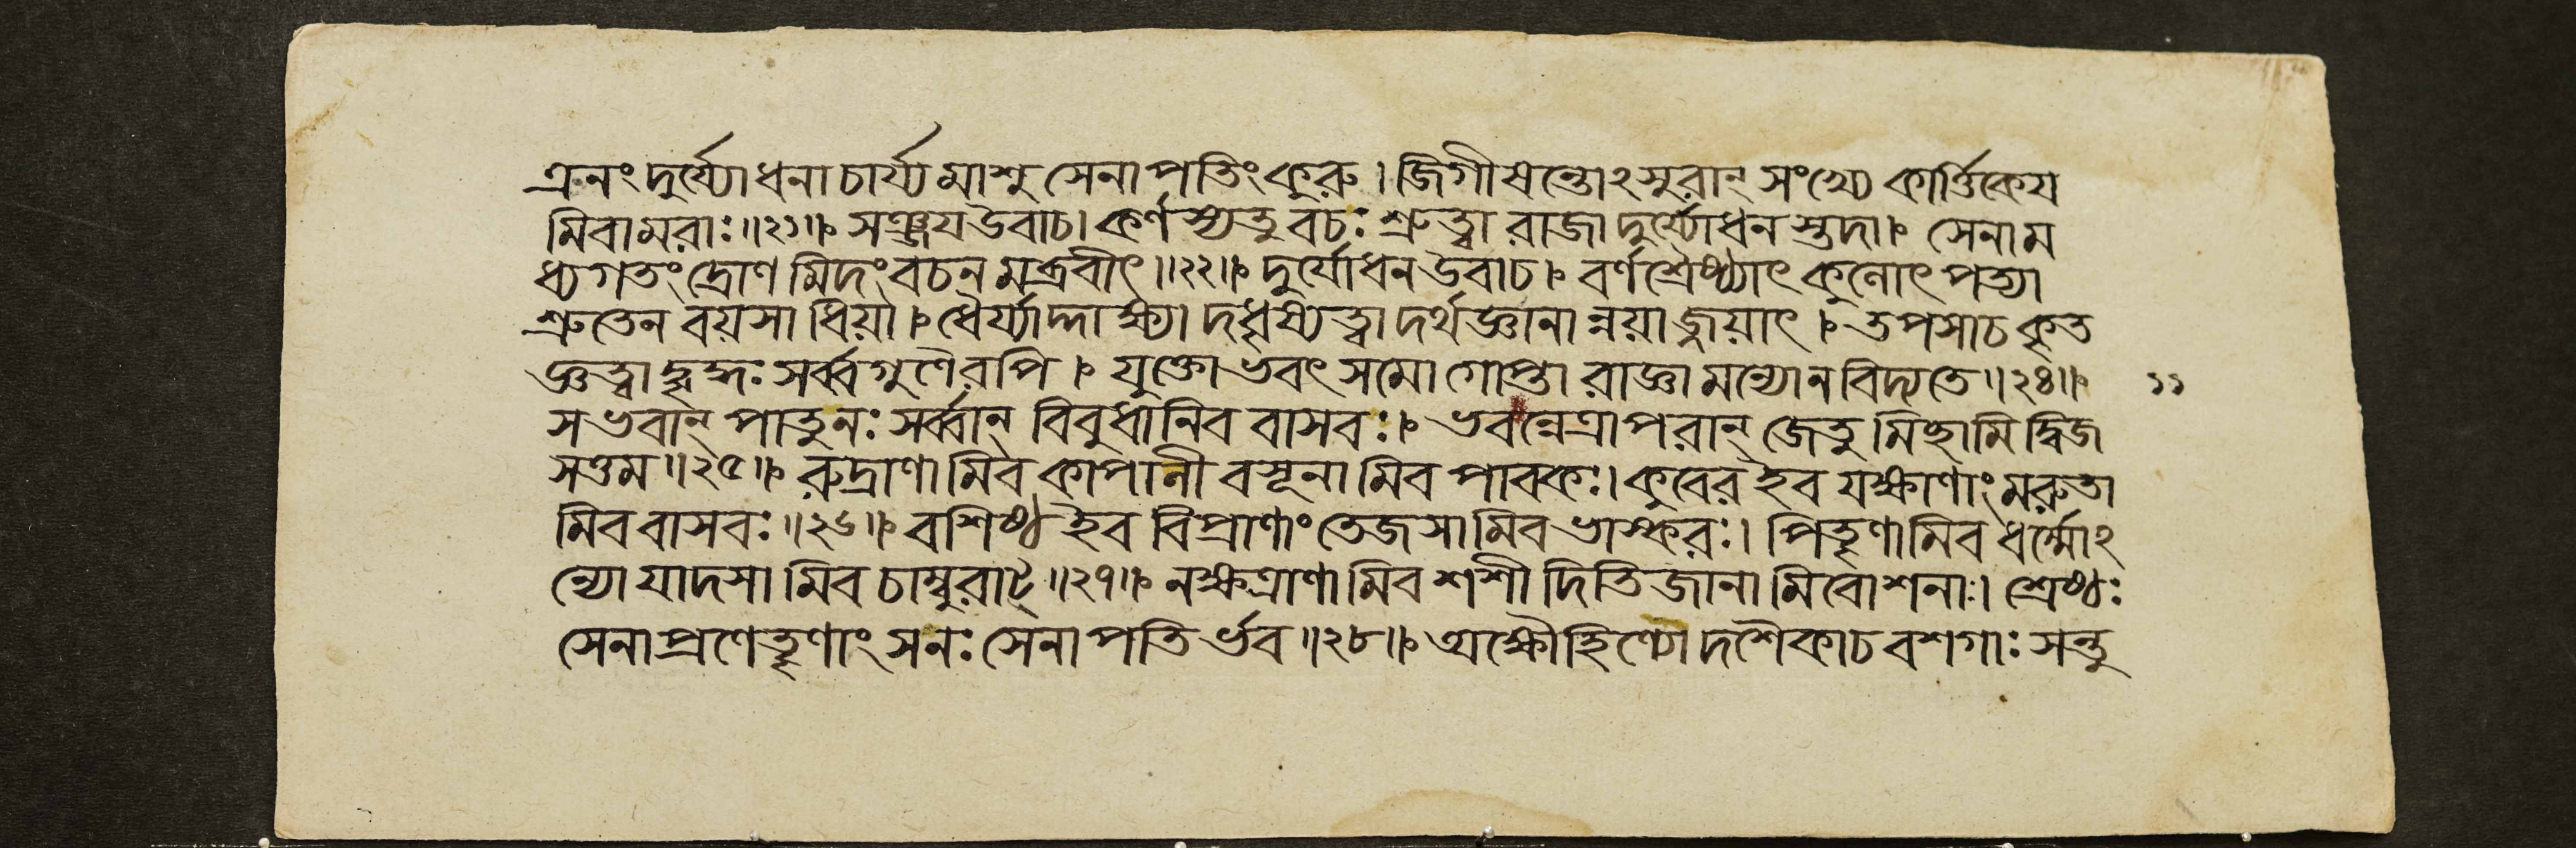 এনং দুর্য্যোধনাচার্য্যমাশু সেনাপতিং কুরু। জিগীষন্তোঽসুরান্ সংখ্যে কার্ত্তিকেয
মিবামরাঃ॥২১॥ সঞ্জয উবাচ। কর্ণস্যৈতু বচঃ শ্রুত্বা রাজা দুর্য্যোধনস্তদা। সেনাম
ধ্যগতং দ্রোণমিদং বচনমব্রবীৎ॥২২॥ দুর্যোধন উবাচ। বর্ণশ্রৈষ্ঠ্যাৎ কুলোৎপত্যা
শ্রুতেন বয়সা ধিয়া। ধৈর্য্যাদ্দাক্ষ্যাদধৃষ্যত্বাদর্থজ্ঞানান্নয়াজ্জয়াৎ। তপসাচ কৃত
জ্ঞত্বাদ্বৃদ্ধঃ সর্ব্বগুণৈরপি। যুক্তো ভবৎসমো গোপ্তা রাজ্ঞামন্যো ন বিদ্যতে॥২৪॥ ১১
স ভবান্ পাতু নঃ সর্ব্বান্ বিবুধানিব বাসবঃ। ভবন্নেত্রা পরান্ জেতুমিছামি দ্বিজ
সত্তম॥২৫॥ রুদ্রাণামিব কাপালী বসূনামিব পাবকঃ। কুবের ইব যক্ষাণাং মরুতা
মিব বাসবঃ॥২৬॥ বশিষ্ঠ ইব বিপ্রাণাং তেজসামিব ভাস্করঃ। পিতৄণামিব ধর্ম্মোঽ
ন্যো যাদসামিব চাম্বুরাট্॥২৭॥ নক্ষত্রাণামিব শশী দিতিজানামিবোশনাঃ। শ্রেষ্ঠঃ
সেনাপ্রণেতৄণাং স নঃ সেনাপতির্ভব॥২৮॥ অক্ষৌহিণ্যো দশৈকাচ বশগাঃ সন্তু